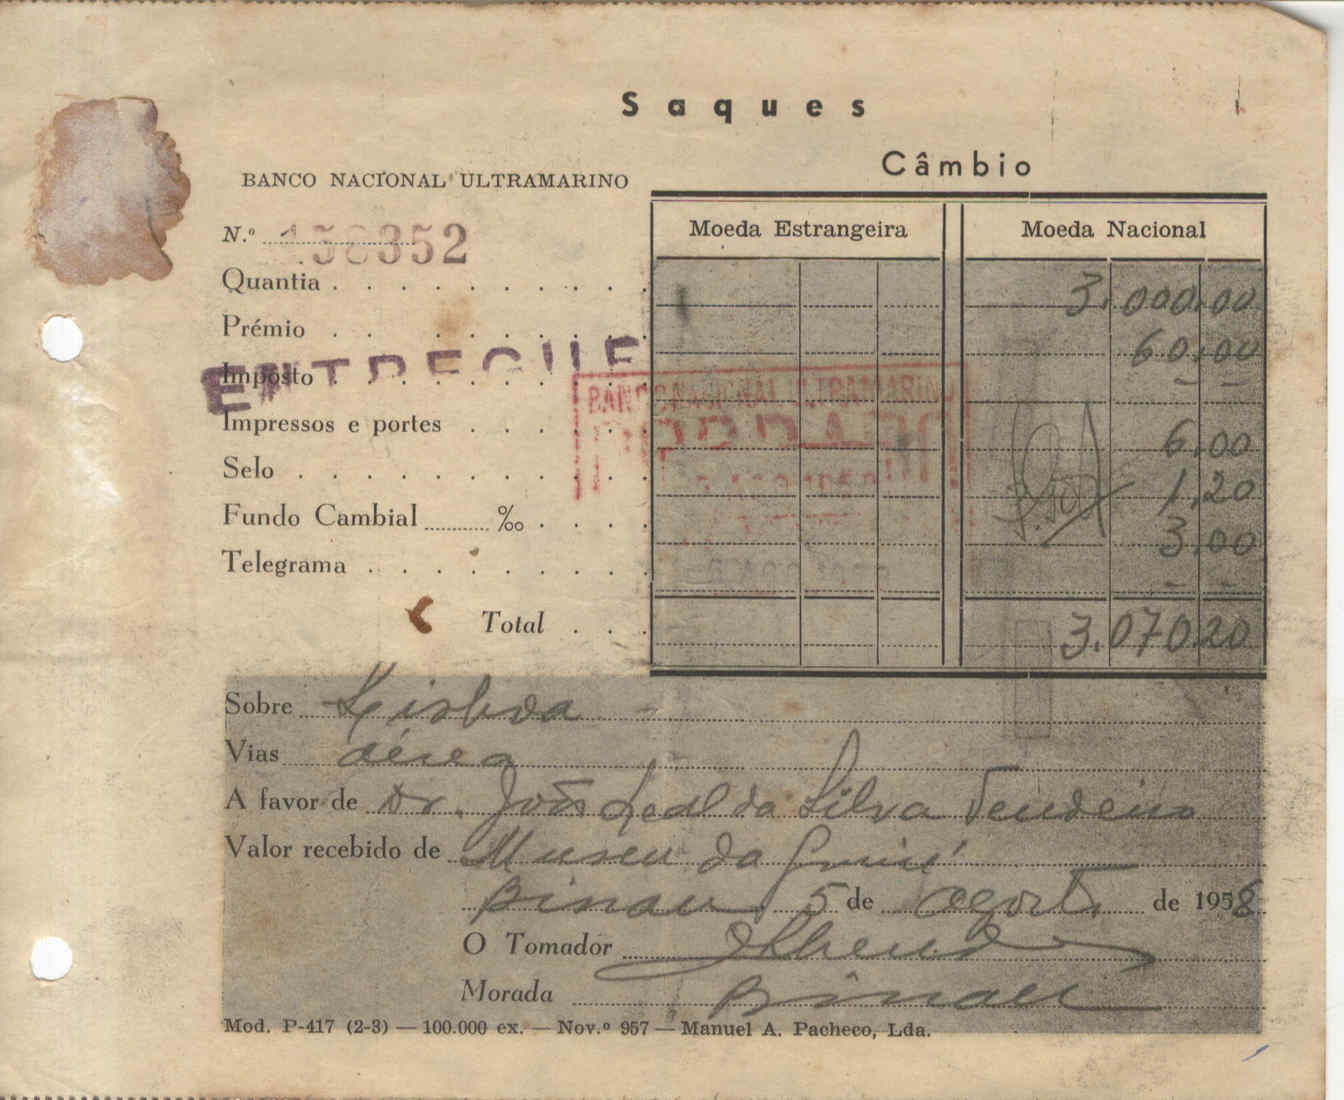 Saques
Câmbio
BANCO NACIONAL ULTRAMARINO
Moeda Estrangeira Moeda Nacional
N.º 158352
Quantia . . . . . . . . . . 3.000.00
Prémio . . . . . . . . . 60.00
ENTREGUE
Imposto . . . . . . . . . — —
BANCO NACIONAL ULTRAMARINO
Impressos e portes . . . . . . 6.00
Selo . . . . . . . . . . 1,20
Fundo Cambial ......... ‰ . . . . 3.00
Telegrama . . . . . . . . . — —
Total . . . 3.070.20
Sobre Lisboa -
Vias aérea
A favor de Dr. João Leal da Silva Tendeiro
Valor recebido de Museu da Guiné
Bissau 5 de agosto de 1958
O Tomador
Morada Bissau
Mod. P-417 (2-3) — 100.000 ex. — Nov.º 957 — Manuel A. Pacheco, Lda.